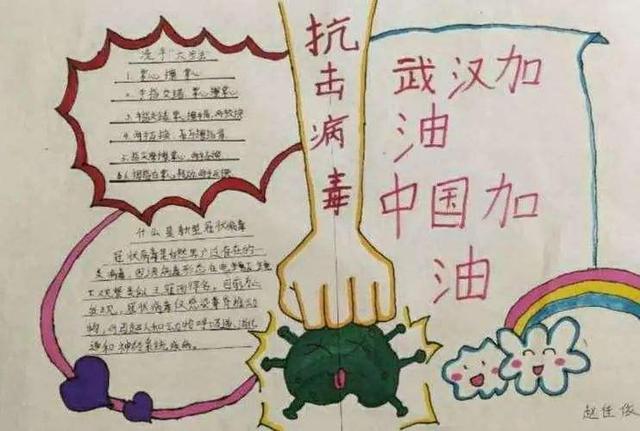 洗手六步法
1. 掌心擦掌心
2. 手指交错,掌心擦掌心
3. 手指交错,掌心擦手背,两手互换
4. 两手互握,互擦指背
5. 指尖摩擦掌心,两手互换
6. 拇指在掌心转动,两手互换
什么是新型冠状病毒
冠状病毒是自然界广泛存在的
类病毒,因该病毒形态在电镜
下观察类似王冠而得名。目前为止
发现,冠状病毒仅感染脊椎动
物,可引起人和动物呼吸道、消化
道和神经系统疾病。
抗击病毒
武汉加
油
中国加
油
赵佳俊